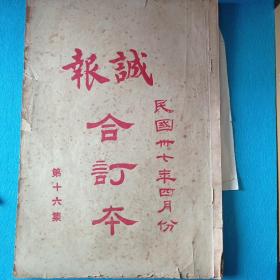 誠報
民國卅七年四月份
合訂本
第十六集